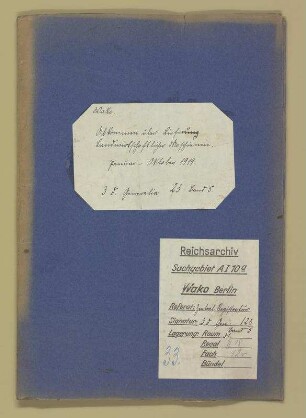 WaKo.
Abkommen über Lieferung
landwirtschaftlicher Maschinen.
Januar - Oktober 1919
3 F. Generalia 23 Band 5
Reichsarchiv
Sachgebiet A I 109
Wako Berlin
Referat: Zentral-Registratur
Signatur: 3 F Gen 123
Band 5
Lagerung: Raum
Regal
Fach
Bündel
33.